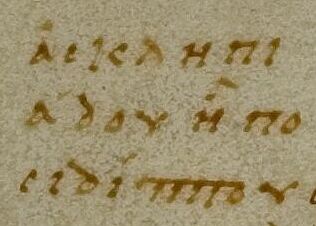 ἀσκληπι
άδου ἢ πο
σιδίππου